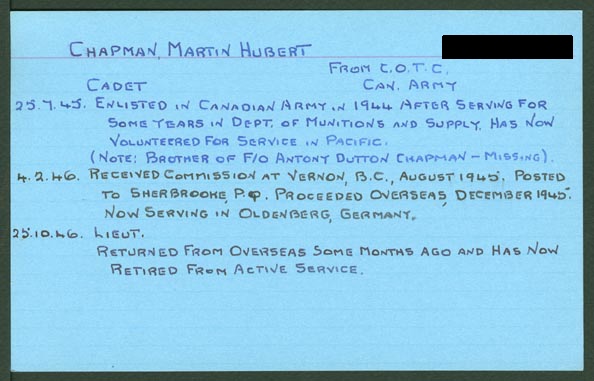 CHAPMAN, MARTIN HUBERT
FROM C.O.T.C.
CADET CAN. ARMY
25.7.45. ENLISTED IN CANADIAN ARMY IN 1944 AFTER SERVING FOR
SOME YEARS IN DEPT. OF MUNITIONS AND SUPPLY. HAS NOW
VOLUNTEERED FOR SERVICE IN PACIFIC.
(NOTE: BROTHER OF F/O ANTONY DUTTON CHAPMAN – MISSING).
4.2.46. RECEIVED COMMISSION AT VERNON, B.C., AUGUST 1945. POSTED
TO SHERBROOKE, P.Q. PROCEEDED OVERSEAS, DECEMBER 1945.
NOW SERVING IN OLDENBERG, GERMANY.
25.10.46. LIEUT.
RETURNED FROM OVERSEAS SOME MONTHS AGO AND HAS NOW
RETIRED FROM ACTIVE SERVICE.